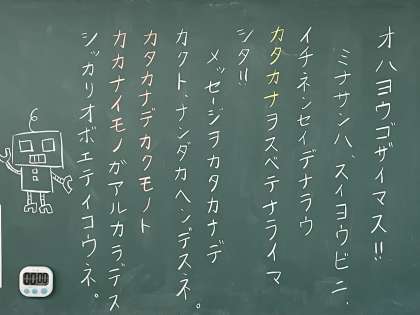 オハヨウゴザイマス!!
ミナサンハ、スイヨウビニ、
イチネンセイデナラウ
カタカナヲスベテナライマ
シタ!!
メッセージヲカタカナデ
カクト、ナンダカヘンデスネ。
カタカナデカクモノト
カカナイモノガアルカラデス
シッカリオボエテイコウネ。